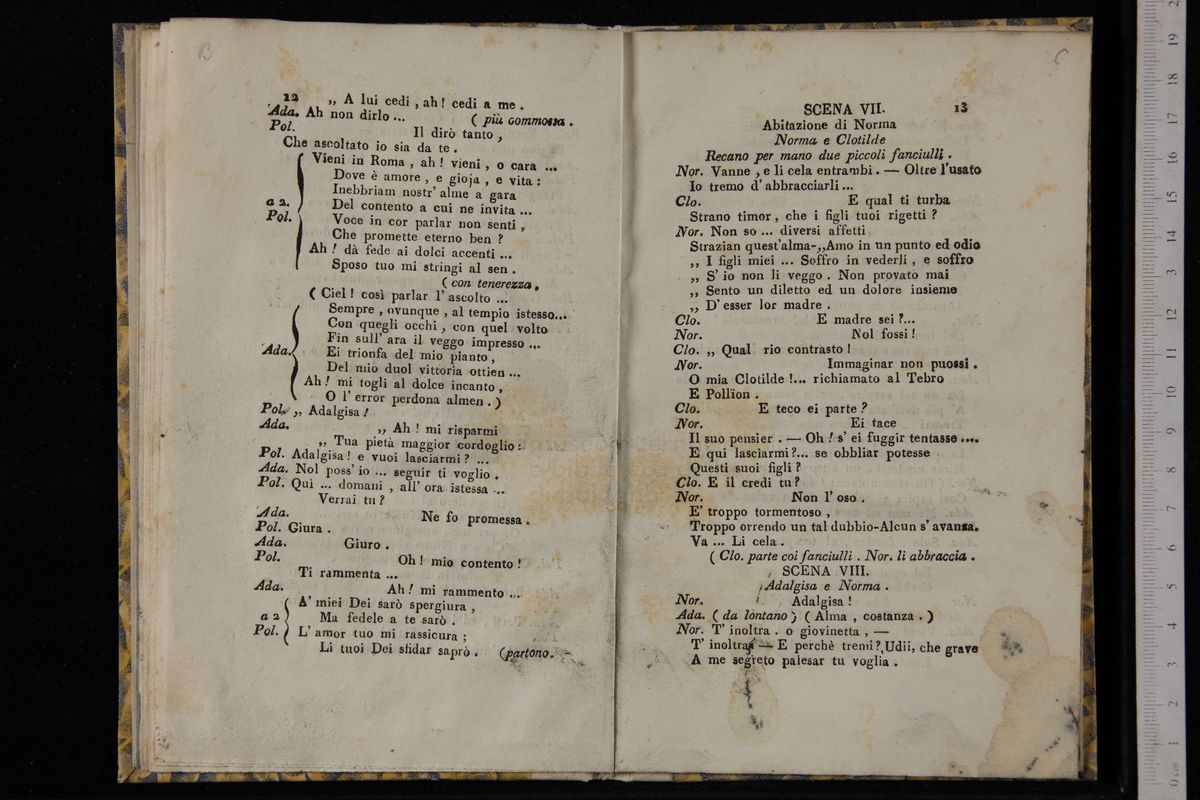 12
,, A lui cedi , ah ! cedi a me .
Ada. Ah non dirlo ... ( più commossa .
Pol. Il dirò tanto ,
Che ascoltato io sia da te .
Vieni in Roma , ah ! vieni , o cara ...
Dove è amore , e gioja , e vita :
Inebbriam nostr' alme a gara
a 2. Del contento a cui ne invita ...
Pol. Voce in cor parlar non senti ,
Che promette eterno ben ?
Ah ! dà fede ai dolci accenti ...
Sposo tuo mi stringi al sen .
( con tenerezza .
( Ciel ! così parlar l' ascolto ...
Sempre , ovunque , al tempio istesso...
Con quegli occhi , con quel volto
Fin sull' ara il veggo impresso ...
Ada. Ei trionfa del mio pianto ,
Del mio duol vittoria ottien ...
Ah ! mi togli al dolce incanto ,
O l' error perdona almen . )
Pol. ,, Adalgisa !
Ada. ,, Ah ! mi risparmi
,, Tua pietà maggior cordoglio :
Pol. Adalgisa ! e vuoi lasciarmi ? ...
Ada. Nol poss' io ... seguir ti voglio .
Pol. Quì ... domani , all' ora istessa ...
Verrai tu ?
Ada. Ne fo promessa .
Pol. Giura .
Ada. Giuro .
Pol. Oh ! mio contento !
Ti rammenta ...
Ada. Ah ! mi rammento ...
A' miei Dei sarò spergiura ,
a 2 Ma fedele a te sarò .
Pol. L' amor tuo mi rassicura ;
Li tuoi Dei sfidar saprò . (partono.
SCENA VII. 13
Abitazione di Norma
Norma e Clotilde
Recano per mano due piccoli fanciulli .
Nor. Vanne , e li cela entrambi . — Oltre l'usato
Io tremo d' abbracciarli ...
Clo. E qual ti turba
Strano timor , che i figli tuoi rigetti ?
Nor. Non so ... diversi affetti
Strazian quest'alma-,,Amo in un punto ed odio
,, I figli miei ... Soffro in vederli , e soffro
,, S' io non li veggo . Non provato mai
,, Sento un diletto ed un dolore insieme
,, D' esser lor madre .
Clo. E madre sei ?...
Nor. Nol fossi !
Clo. ,, Qual rio contrasto !
Nor. Immaginar non puossi .
O mia Clotilde !... richiamato al Tebro
E Pollïon .
Clo. E teco ei parte ?
Nor. Ei tace
Il suo pensier . — Oh ! s' ei fuggir tentasse ....
E qui lasciarmi ?... se obbliar potesse
Questi suoi figli ?
Clo. E il credi tu ?
Nor. Non l' oso .
E' troppo tormentoso ,
Troppo orrendo un tal dubbio-Alcun s' avanza.
Va ... Li cela .
( Clo. parte coi fanciulli . Nor. li abbraccia .
SCENA VIII.
Adalgisa e Norma .
Nor. Adalgisa !
Ada. ( da lontano ) ( Alma , costanza . )
Nor. T' inoltra . o giovinetta , —
T' inoltra — E perchè tremi ? Udii, che grave
A me segreto palesar tu voglia .